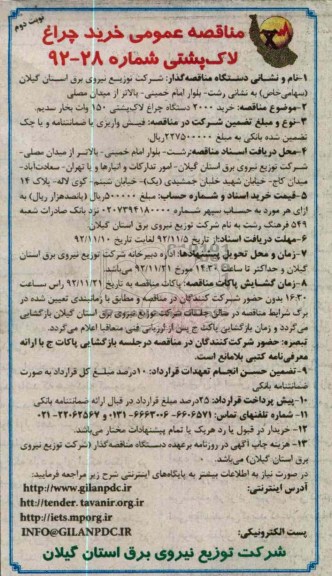 نوبت دوم
مناقصه عمومی خرید چراغ
لاک‌پشتی شماره ۲۸-۹۲
۱-نام و نشانی دستگاه مناقصه‌گذار: شرکت توزیع نیروی برق استان گیلان
(سهامی‌خاص) به نشانی رشت- بلوار امام خمینی- بالاتر از میدان مصلی
۲-موضوع مناقصه: خرید ۲۰۰۰ دستگاه چراغ لاک‌پشتی ۱۵۰ وات بخار سدیم.
۳-نوع و مبلغ تضمین شرکت در مناقصه: فیش واریزی یا ضمانتنامه و یا چک
تضمین شده بانکی به مبلغ ۲۲۷۵۰۰۰۰۰ریال.
۴-محل دریافت اسناد مناقصه:رشت- بلوار امام خمینی- بالاتر از میدان مصلی-
شرکت توزیع نیروی برق استان گیلان- امور تدارکات و انبارها و یا تهران- سعادت‌آباد-
میدان کاج- خیابان شهید خلبان جمشیدی (یک)- خیابان شبنم- کوی لاله- پلاک ۱۴
۵-قیمت خرید اسناد و شماره حساب: مبلغ ۵۰۰۰۰۰ریال (پانصدهزار ریال) به
ازای هر مورد به حساب سپهر شماره ۰۲۰۷۳۹۴۱۸۰۰۰۰ نزد بانک صادرات شعبه
۵۴۹ فرهنگ رشت به نام شرکت توزیع نیروی برق استان گیلان.
۶-مهلت دریافت اسناد:از تاریخ ۹۲/۱۱/۵ لغایت تاریخ ۹۲/۱۱/۱۰
۷-زمان و محل تحویل پیشنهادها: اداره دبیرخانه شرکت توزیع نیروی برق استان
گیلان و حداکثر تا ساعت ۱۴:۳۰ مورخ ۹۲/۱۱/۲۱ می‌باشد.
۸-زمان گشایش پاکات مناقصه: پاکات مناقصه به تاریخ ۹۲/۱۱/۲۱ راس ساعت
۱۶:۳۰ بدون حضور شرکت کنندگان در مناقصه و مطابق با زمانبندی تعیین شده در
برگ شرایط مناقصه در سالن جلسات شرکت توزیع نیروی برق استان گیلان بازگشایی
می‌گردد و زمان بازگشایی پاکت ج پس از ارزیابی فنی متعاقبا اعلام می‌گردد.
تبصره: حضور شرکت‌کنندگان در مناقصه درجلسه بازگشایی پاکات ج با ارائه
معرفی‌نامه کتبی بلامانع است.
۹-تضمین حسن انجام تعهدات قرارداد: ۱۰درصد مبلغ کل قرارداد به صورت
ضمانتنامه بانکی
۱۰-پیش پرداخت قرارداد: ۲۵درصد مبلغ قرارداد در قبال ارائه ضمانتنامه بانکی
۱۱- شماره تلفنهای تماس: ۶۶۰۶۵۷۱-۶۶۶۳۰۰۶-۰۱۳۱ و ۲۲۰۶۲۵۶۷-۰۲۱
۱۲- خریدار در قبول یا رد هریک یا تمام پیشنهادات مختار می‌باشد.
۱۳- هزینه چاپ آگهی در روزنامه برعهده دستگاه مناقصه‌گذار (شرکت توزیع نیروی
برق استان گیلان) می‌باشد.
در صورت نیاز به اطلاعات بیشتر به پایگاه‌های اینترنتی شرح زیر مراجعه فرمایید:
آدرس اینترنتی: http://www.gilanpdc.ir
htt://tender.tavanir.org.ir
http://iets.mporg.ir
پست الکترونیکی: INFO@GILANPDC.IR
شرکت توزیع نیروی برق استان گیلان